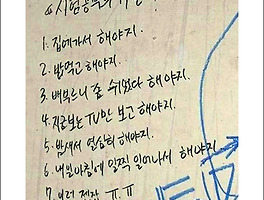 시험공부의
1. 집에가서 해야지.
2. 밥먹고 해야지.
3. 배부르니 좀 쉬었다 해야지.
4. 지금보는 TV만 보고 해야지.
5. 밤새서 열심히 해야지.
6. 내일아침에 일찍 일어나서 해야지.
7. 이런 젠장 ㅠ.ㅠ